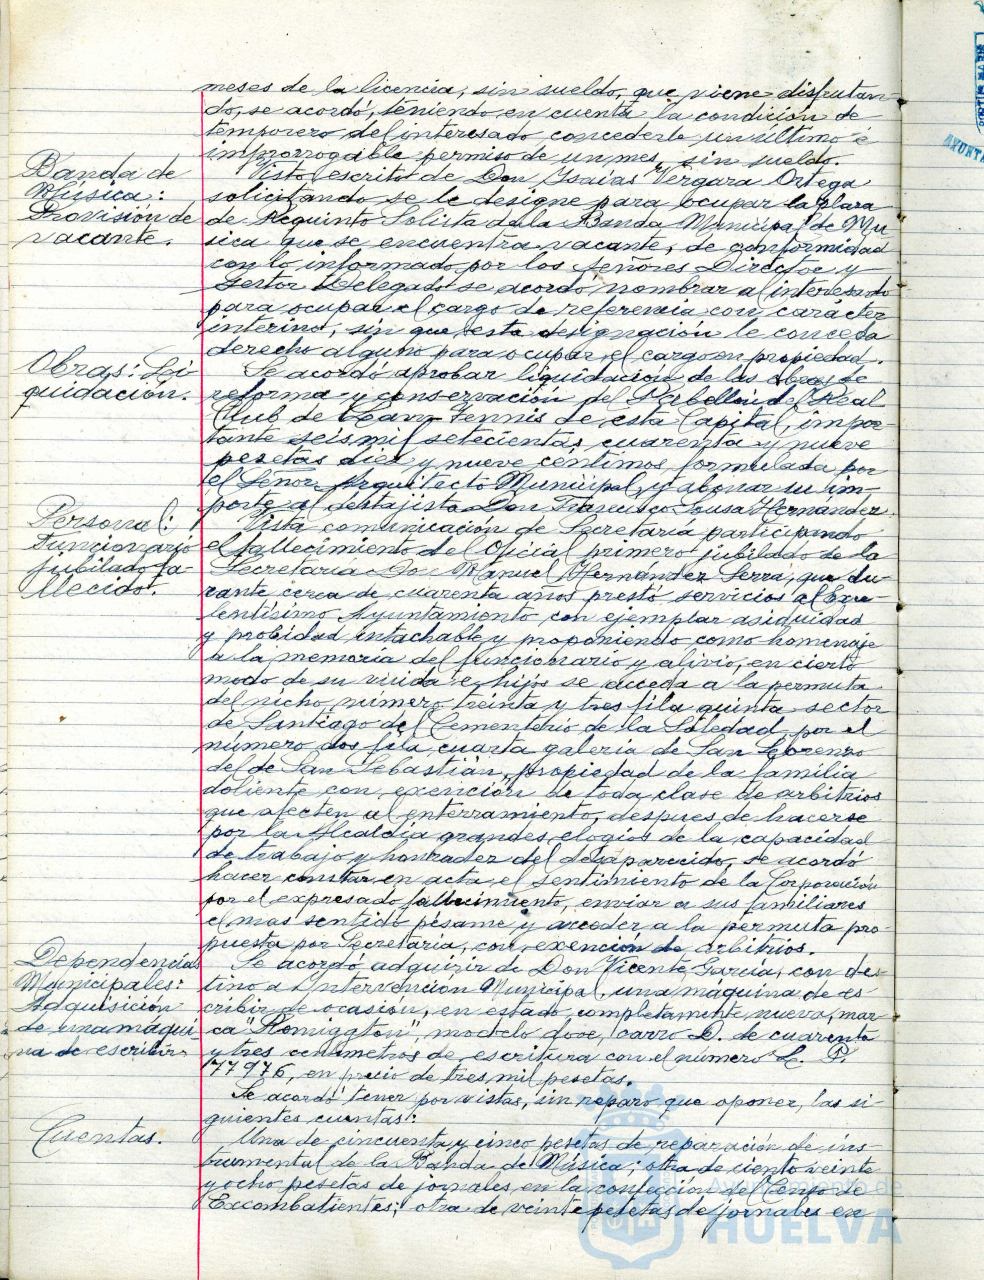 meses de la licencia, sin sueldo, que viene disfrutan-
do, se acordó, teniendo en cuenta la condición de
temporero del interesado concederle un último e
improrrogable permiso de un mes, sin sueldo.
Banda de
Música:
Provisión de
vacante.
Visto escrito de Don Isaías Vergara Ortega
solicitando se le designe para ocupar la plaza
de Requinto Solista de la Banda Municipal de Mú-
sica que se encuentra vacante, de conformidad
con lo informado por los Señores Director y
Gestor Delegado se acordó nombrar al interesado
para ocupar el cargo de referencia con carácter
interino, sin que esta designación le conceda
derecho alguno para ocupar el cargo en propiedad.
Obras: Li-
quidación.
Se acordó aprobar liquidación de las obras de
reforma y conservación del Pabellón del Real
Club de Lawn Tennis de esta Capital, impor-
tante seis mil setecientas cuarenta y nueve
pesetas diez y nueve céntimos, formulada por
el Señor Arquitecto Municipal, y abonar su im-
porte al destajista Don Francisco Sousa Hernández.
Personal:
Funcionario
jubilado fa-
llecido.
Vista comunicación de Secretaría participando
el fallecimiento del Oficial primero jubilado de la
Secretaría Do Manuel Hernández Serra, que du-
rante cerca de cuarenta años prestó servicios al Exce-
lentísimo Ayuntamiento con ejemplar asiduidad
y probidad intachable y proponiendo como homenaje
a la memoria del funcionario y alivio, en cierto
modo de su viuda e hijos se acceda a la permuta
del nicho, número treinta y tres fila quinta sector
de Santiago del Cementerio de la Soledad, por el
número dos fila cuarta galería de San Lorenzo
del de San Sebastián, propiedad de la familia
doliente con exención de toda clase de arbitrios
que afecten al enterramiento, despues de hacerse
por la Alcaldía grandes elogios de la capacidad
de trabajo y honradez del desaparecido, se acordó
hacer constar en acta el sentimiento de la Corporación
por el expresado fallecimiento, enviar a sus familiares
el mas sentido pésame y acceder a la permuta pro-
puesta por Secretaría, con exención de arbitrios.
Dependencias
Municipales:
Adquisición
de una máqui-
na de escribir.
Se acordó adquirir de Don Vicente García, con des-
tino a Intervención Municipal, una máquina de es-
cribir de ocasión, en estado completamente nuevo, mar-
ca "Remiggton", modelo doce, carro D. de cuarenta
y tres centímetros de escritura con el número L. P.
77976, en precio de tres mil pesetas.
Cuentas.
Se acordó tener por vistas, sin reparo que oponer, las si-
guientes cuentas:
Una de cincuenta y cinco pesetas de reparación de ins-
trumental de la Banda de Música; otra de ciento veinte
y ocho pesetas de jornales en la confección del Censo de
Excombatientes; otra de veinte pesetas de jornales en
Ayuntamiento de
HUELVA